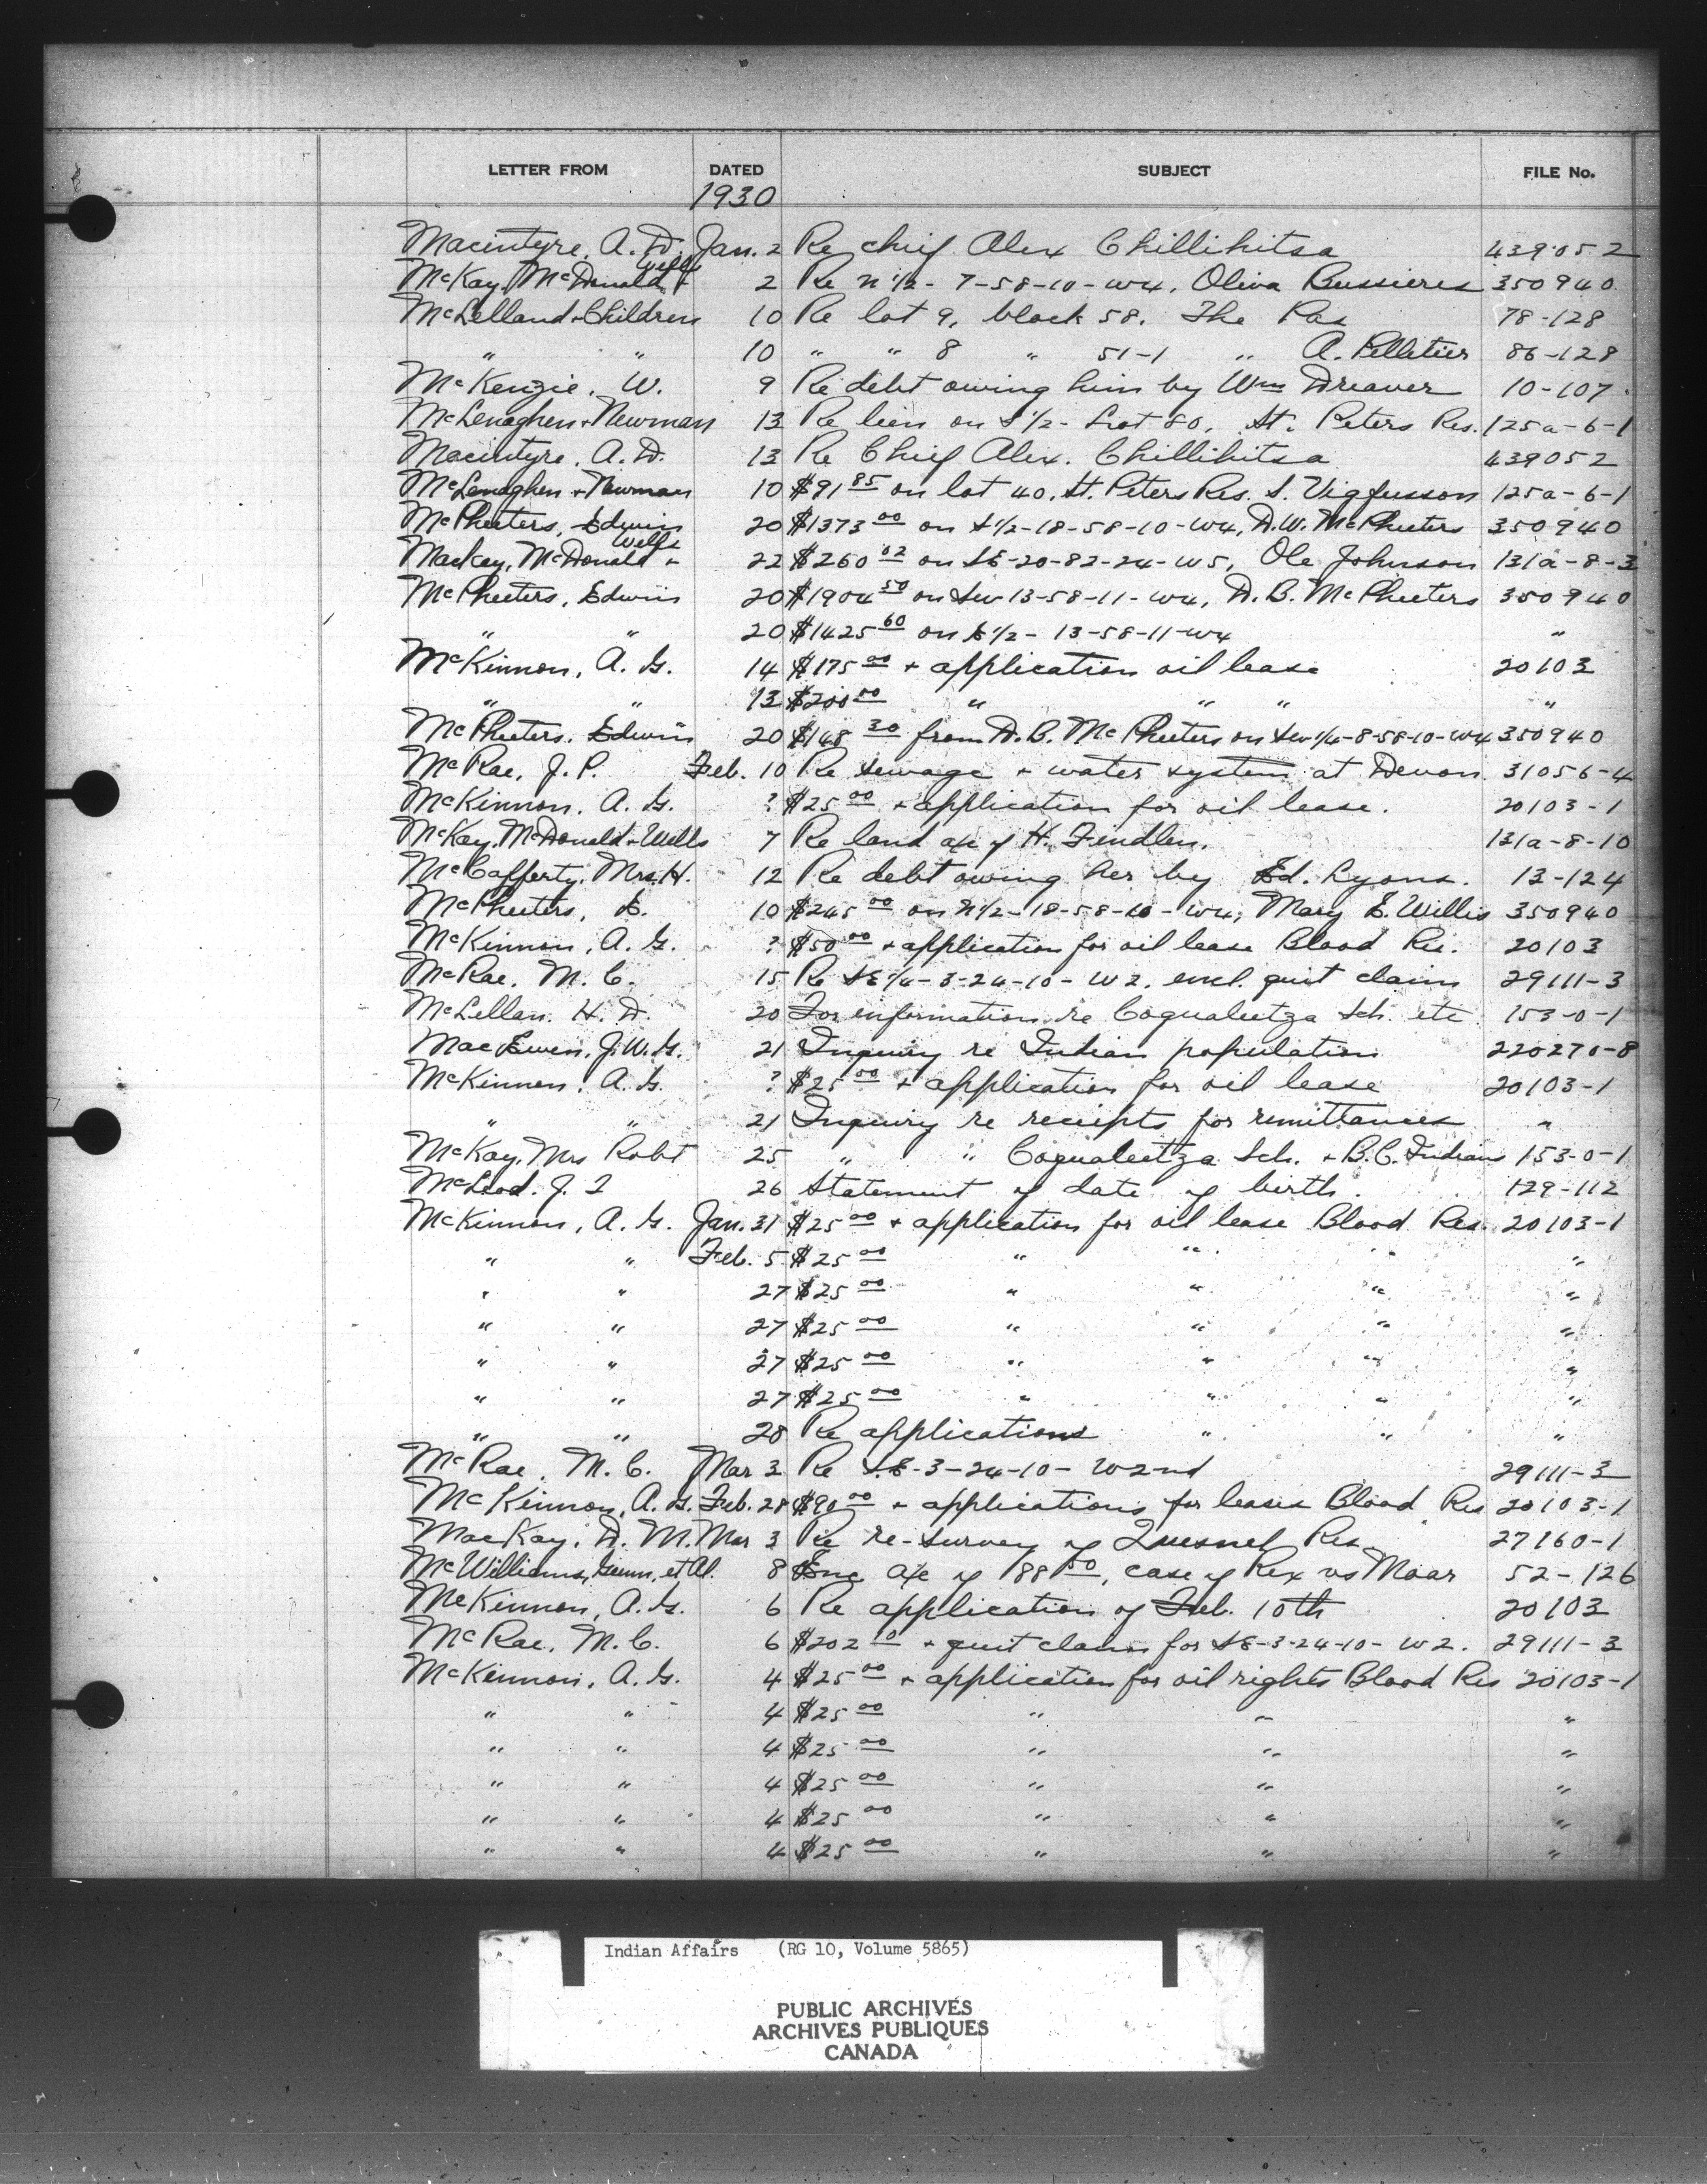 LETTER FROM DATED SUBJECT FILE No.
1930
Macintyre, A. D. Jan. 2 Re chief Alex Chillihitsa 439052
McKay, McDonald + Wells 2 Re N 1/2 - 7-58-10-W4, Oliva Bussieres 350940
McLelland + Children 10 Re lot 9, block 58. The Pas 78-128
" " 10 " " 8 " 51-1 " A. Pelletier 86-128
McKenzie, W. 9 Re debt owing him by Wm Dreaver 10-107
McLenaghen + Newman 13 Re lien on S 1/2 - Lot 80, St. Peters Res. 125a-6-1
Macintyre, A. D. 13 Re Chief Alex. Chillihitsa 439052
McLenaghen + Newman 10 $91 85 on lot 40, St. Peters Res. S. Vigfusson 125a-6-1
McPheeters, Edwin 20 $1373 00 on S 1/2-18-58-10-W4, D.W. McPheeters 350940
Mackay, McDonald + Wells 22 $260 02 on SE-20-82-24-W5, Ole Johnson 131a-8-3
McPheeters, Edwin 20 $1904 50 on SW 13-58-11-W4, D. B. McPheeters 350940
" " 20 $1425 60 on E 1/2 - 13-58-11-W4 "
McKinnon, A. G. 14 $175 00 + application oil lease 20103
" " 13 $200 00 " " " "
McPheeters, Edwin 20 $148 30 from D. B. McPheeters on SW 1/4-8-58-10-W4 350940
McRae, J. P. Feb. 10 Re sewage + water system at Devon 31056-4
McKinnon, A. G. ? $25 00 + application for oil lease. 20103-1
McKay, McDonald + Wells 7 Re land a/c of H. Fendlen. 131a-8-10
McCafferty, Mrs. H. 12 Re debt owing her by Ed. Lyons. 13-124
McPheeters, E. 10 $245 00 on N 1/2-18-58-10-W4, Mary E. Willis 350940
McKinnon, A. G. ? $50 00 + application for oil lease Blood Res. 20103
McRae, M. C. 15 Re SE 1/4-3-24-10-W2, encl. quit claim 29111-3
McLellan, H. D. 20 For information re Coqualeetza Sch. etc 153-0-1
MacEwen, J. W. G. 21 Inquiry re Indian population 220270-8
McKinnon, A. G. ? $25 00 + application for oil lease 20103-1
" " 21 Inquiry re receipts for remittances "
McKay, Mrs Robt 25 " " Coqualeetza Sch. + B.C. Indians 153-0-1
McLeod, J. I 26 Statement of date of birth. 129-112
McKinnon, A. G. Jan. 31 $25 00 + application for oil lease Blood Res. 20103-1
" " Feb. 5 $25 00 " " " "
" " 27 $25 00 " " " "
" " 27 $25 00 " " " "
" " 27 $25 00 " " " "
" " 27 $25 00 " " " "
" " 28 Re applications " " "
McRae, M. C. Mar 3 Re S.E-3-24-10-W2nd 29111-3
McKinnon, A. G. Feb. 28 $90 00 + applications for leases Blood Res 20103-1
MacKay, D. M. Mar 3 Re re-survey of Quesnel Res 27160-1
McWilliams, Gunn, et Al. 8 Enc a/c of 88 50, case of Rex vs Moar 52-126
McKinnon, A. G. 6 Re application of Feb. 10th 20103
McRae, M. C. 6 $202 10 + quit claim for SE-3-24-10-W2. 29111-3
McKinnon, A. G. 4 $25 00 + application for oil rights Blood Res 20103-1
" " 4 $25 00 " " "
" " 4 $25 00 " " "
" " 4 $25 00 " " "
" " 4 $25 00 " " "
" " 4 $25 00 " " "
Indian Affairs (RG 10, Volume 5865)
PUBLIC ARCHIVES
ARCHIVES PUBLIQUES
CANADA